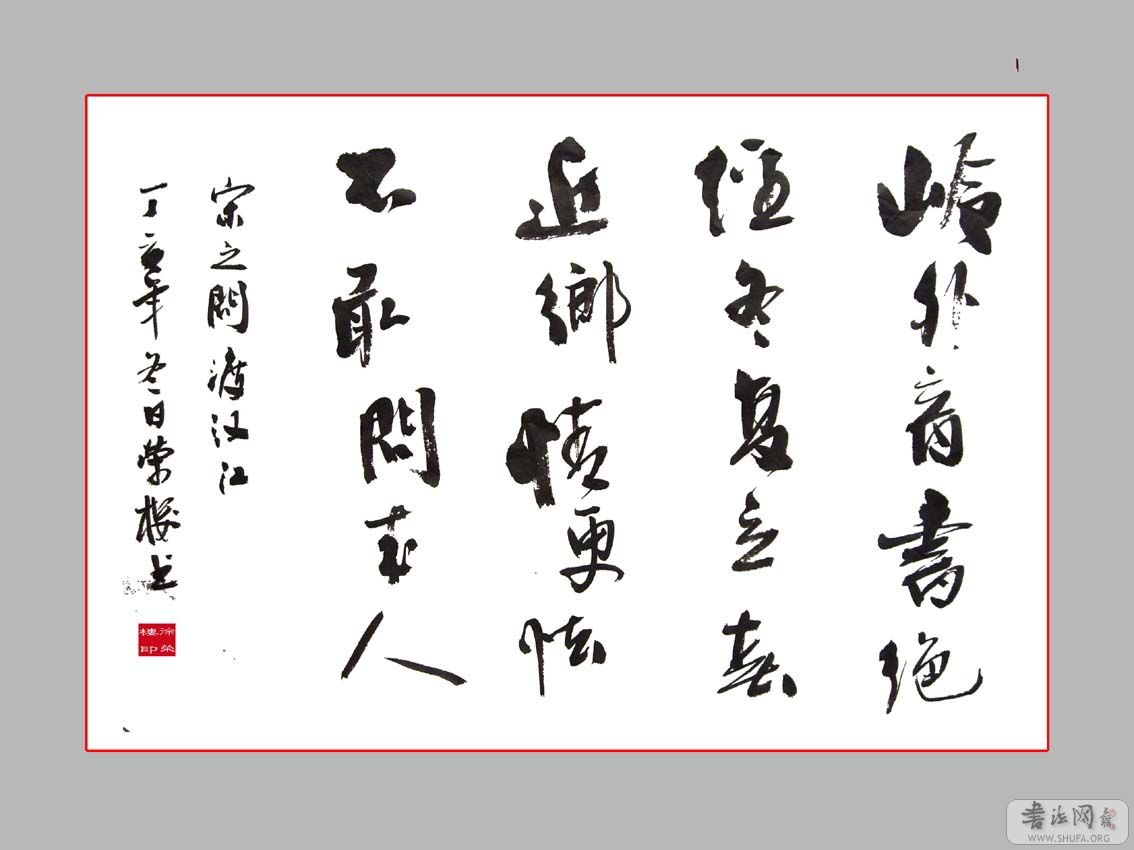 岭外音書绝
经冬复立春
近鄉情更怯
不敢問来人
宋之問渡汉江
丁亥年冬日荣楼书
徐荣樓印
書法网
WWW.SHUFA.ORG